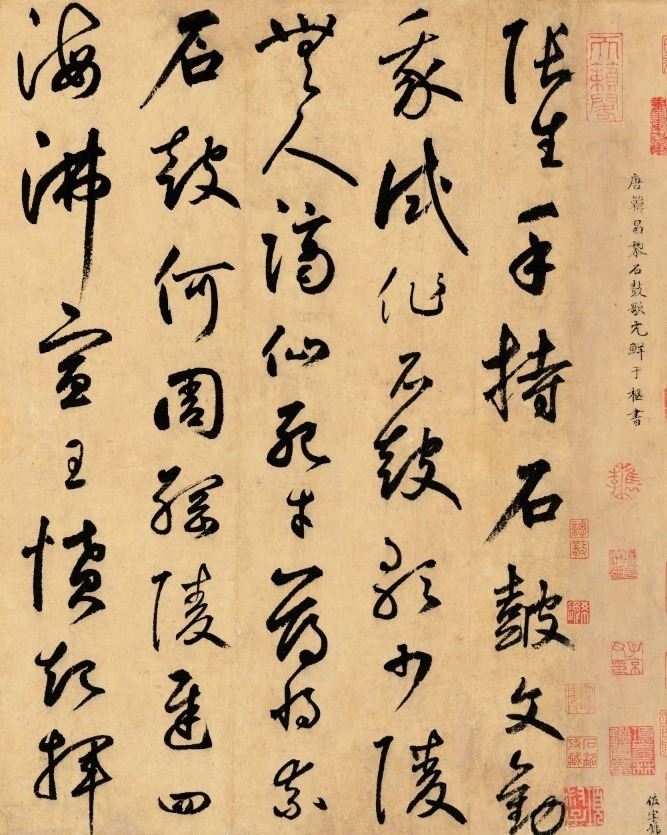 唐韓昌黎石鼓歌元鮮于樞書
天籟閣
子京父印
張生手持石鼓文勸
我試作石鼓歌少陵
無人謫仙死才薄將奈
石鼓何周綱陵遲四
海沸宣王憤起揮